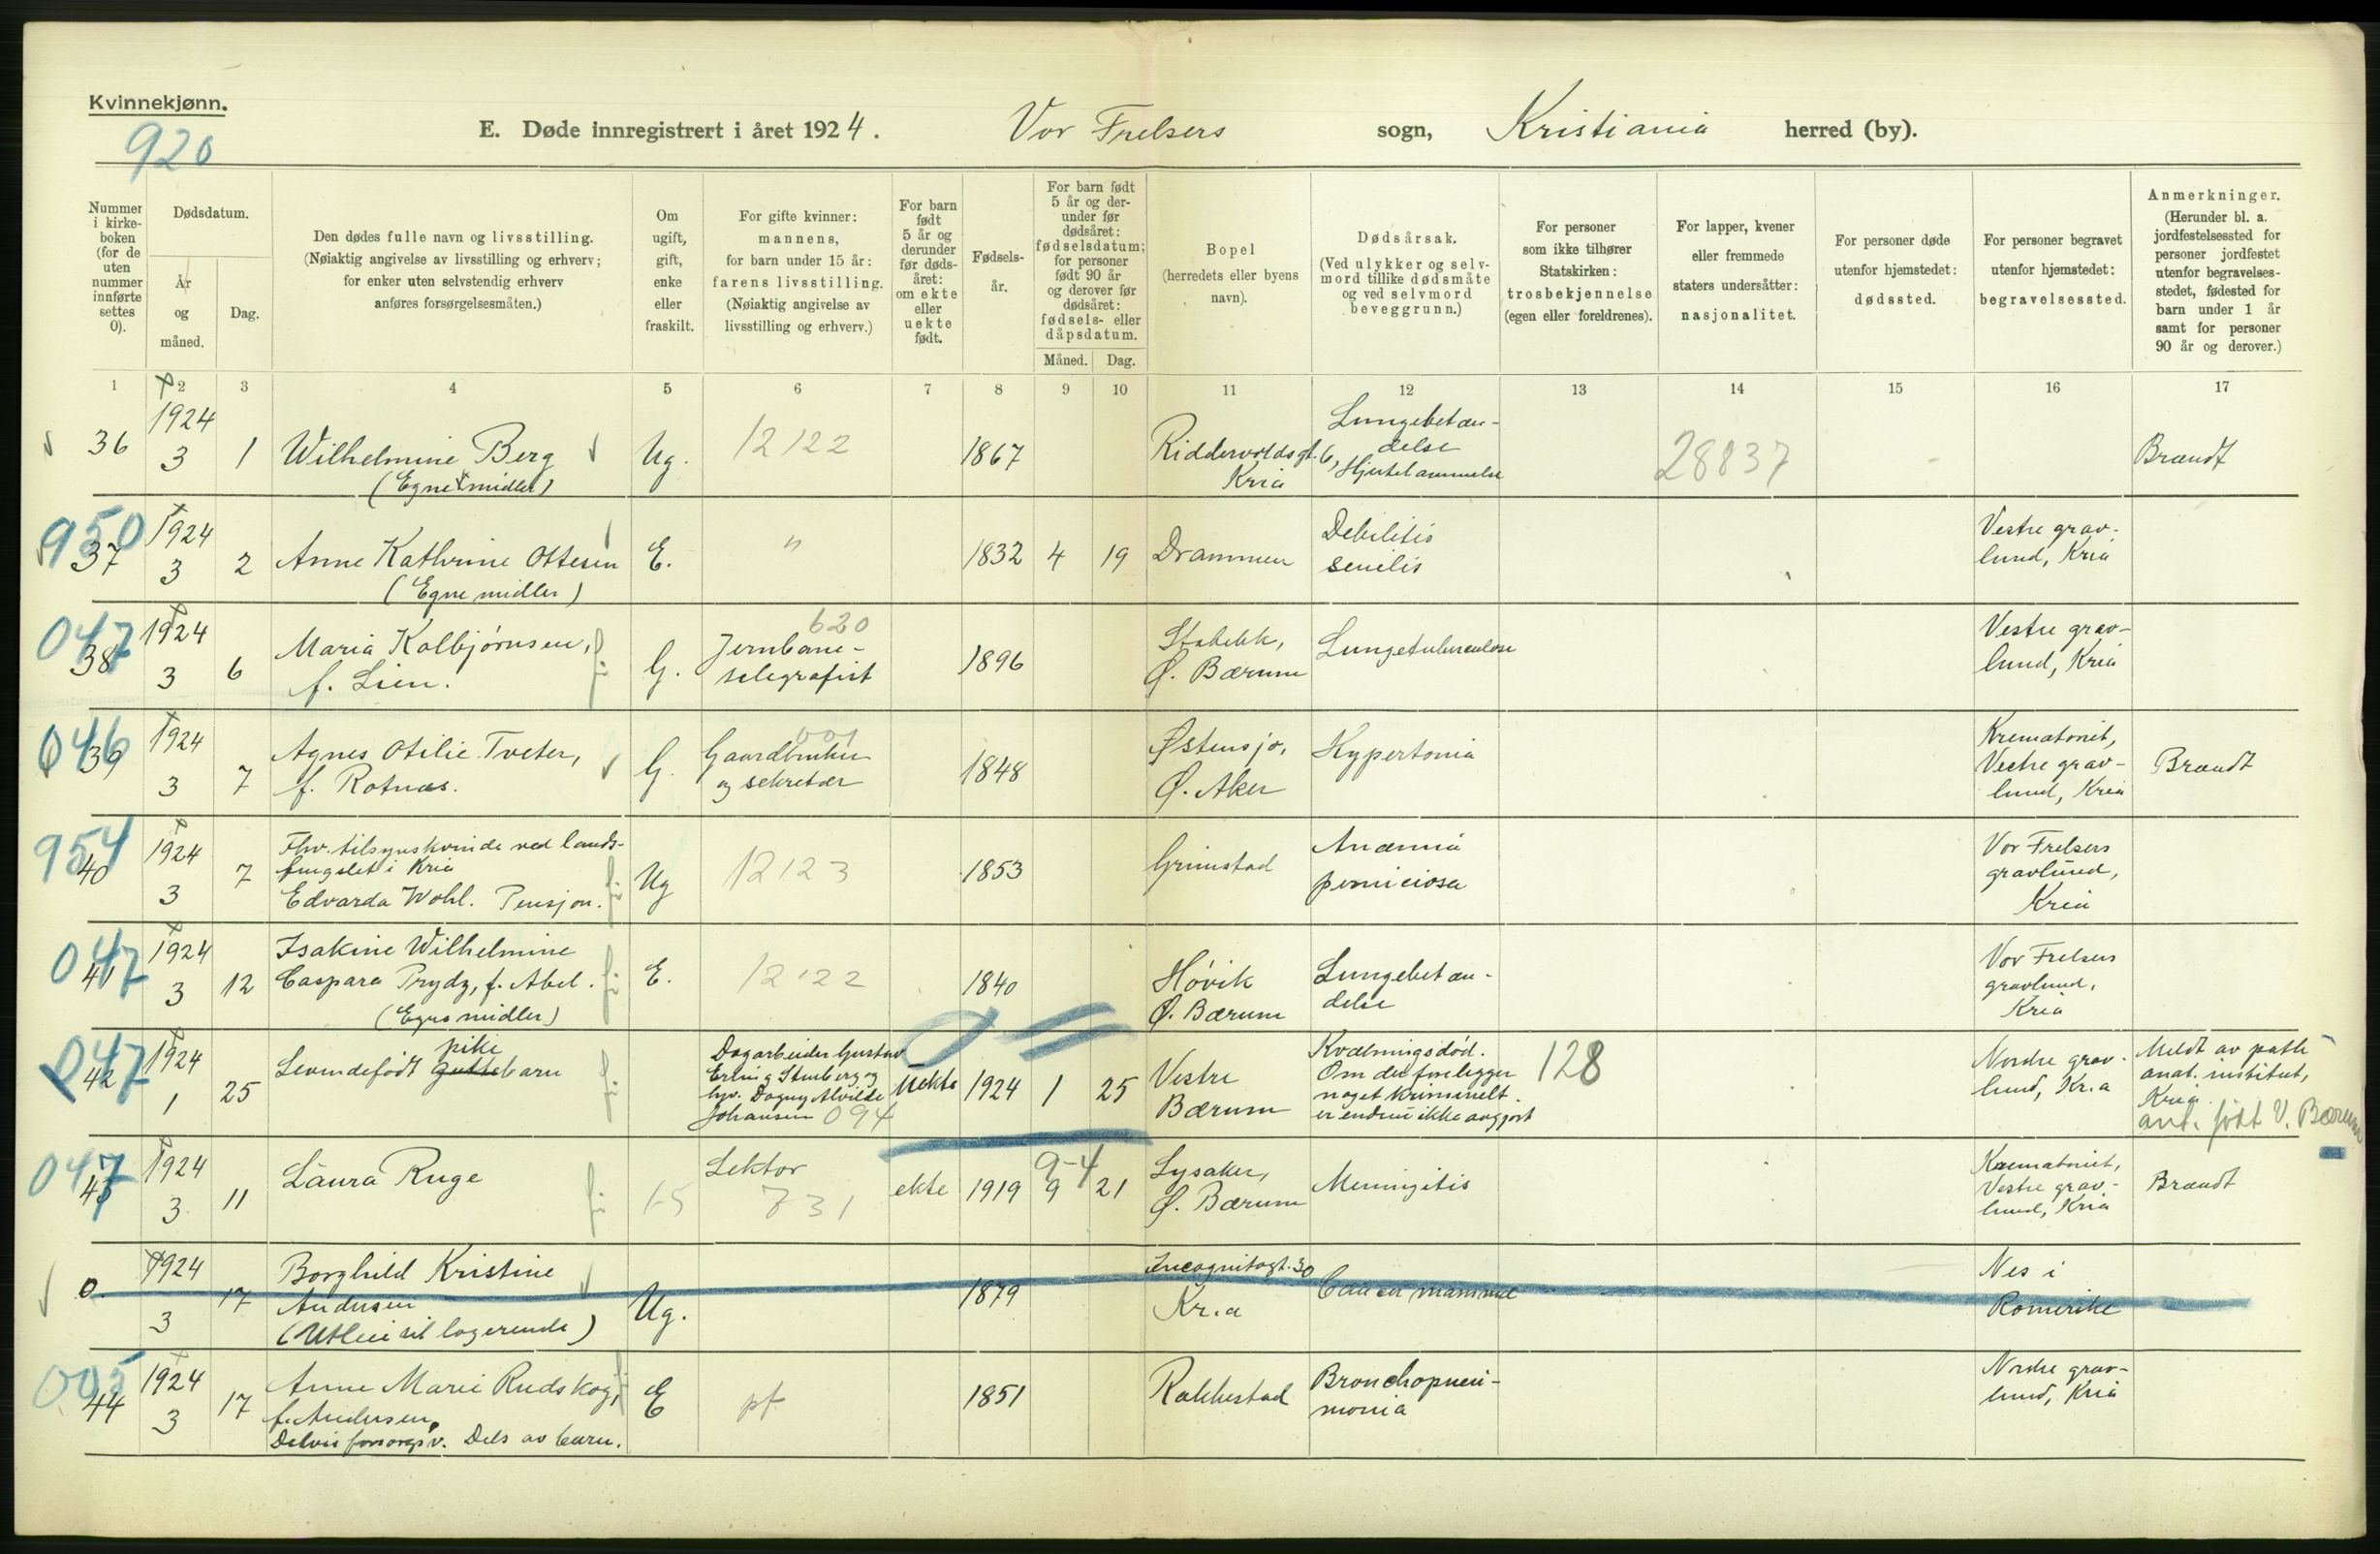 Kvinnekjønn.
920
E. Døde innregistrert i året 1924. Vor Frelsers sogn, Kristiania herred (by).
Nummer i kirke- boken (for de uten nummer innførte settes 0).
Dødsdatum.
År og måned.
Dag.
Den dødes fulle navn og livsstilling.
(Nøiaktig angivelse av livsstilling og erhverv;
for enker uten selvstendig erhverv
anføres forsørgelsesmåten.)
Om ugift, gift, enke eller fraskilt.
For gifte kvinner:
mannens,
for barn under 15 år:
farens livsstilling.
(Nøiaktig angivelse av
livsstilling og erhverv.)
For barn født 5 år og derunder før døds- året: om ekte eller uekte født.
Fødsels- år.
For barn født
5 år og der-
under før
dødsåret:
fødselsdatum;
for personer
født 90 år
og derover før
dødsåret:
fødsels- eller
dåpsdatum.
Måned. Dag.
Bopel
(herredets eller byens
navn).
Dødsårsak.
(Ved ulykker og selv-
mord tillike dødsmåte
og ved selvmord
beveggrunn.)
For personer
som ikke tilhører
Statskirken:
trosbekjennelse
(egen eller foreldrenes).
For lapper, kvener
eller fremmede
staters undersåtter:
nasjonalitet.
For personer døde
utenfor hjemstedet:
dødssted.
For personer begravet
utenfor hjemstedet:
begravelsessted.
Anmerkninger.
(Herunder bl. a.
jordfestelsessted for
personer jordfestet
utenfor begravelses-
stedet, fødested for
barn under 1 år
samt for personer
90 år og derover.)
1 2 3 4 5 6 7 8 9 10 11 12 13 14 15 16 17
36
1924
3
1
Wilhelmine Berg
(Egne midler)
Ug.
12122
1867
Riddervoldsgt. 6,
Kria
Lungebetæn-
delse
Hjertelammelse
28837
Brændt
950
37
1924
3
2
Anne Kathrine Ottesen
(Egne midler)
E.
"
1832 4 19
Drammen
Debilitis
senilis
Vestre grav-
lund, Kria
047
38
1924
3
6
Maria Kolbjørnsen,
f. Lien.
G.
620
Jernbane-
telegrafist
1896
Stabekk,
Ø. Bærum
Lungetuberculose
Vestre grav-
lund, Kria
046
39
1924
3
7
Agnes Otilie Tveter,
f. Rotnæs.
G.
001
Gaardbruker
og sekretær
1848
Østensjø,
Ø. Aker
Hypertonia
Krematoriet,
Vestre grav-
lund, Kria
Brændt
954
40
1924
3
7
Fhv. tilsynskvinde ved lands-
fengslet i Kria
Edvarda Wohl. Pensjon.
Ug
12123
1853
Grimstad
Anæmia
perniciosa
Vor Frelsers
gravlund,
Kria
047
41
1924
3
12
Isakine Wilhelmine
Caspara Prydz, f. Abel.
(Egne midler)
E.
12122
1840
Høvik
Ø. Bærum
Lungebetæn-
delse
Vor Frelsers
gravlund,
Kria
047
42
1924
1
25
pike
Levendefødt guttebarn
Dagarbeider Gustav
Erling Stenberg og
Dagny Alvilde
Johansen 094
Uekte
1924 1 25
Vestre
Bærum
Kvælningsdød.
Om der foreligger
noget kriminelt
er endnu ikke avgjort
128
Nordre grav-
lund, Kr.a
Meldt av path
anat. institut,
Kria
ant. født V. Bærum
047
43
1924
3
11
Laura Ruge
15
Lektor
731
ekte
1919
9-4
9 21
Lysaker,
Ø. Bærum
Meningitis
Krematoriet,
Vestre grav-
lund, Kria
Brændt
0.
1924
3
17
Borghild Kristine
Andersen
(Utleie til logerende)
Ug.
1879
Incognitogt. 30
Kr.a
Cancer mammae
Nes i
Romerike
005
44
1924
3
17
Anne Marie Rudskog,
f. Andersen.
Delvis forsorgsv. Dels av barn.
E
pf
1851
Rakkestad
Bronchopneu-
monia
Nordre grav-
lund, Kria